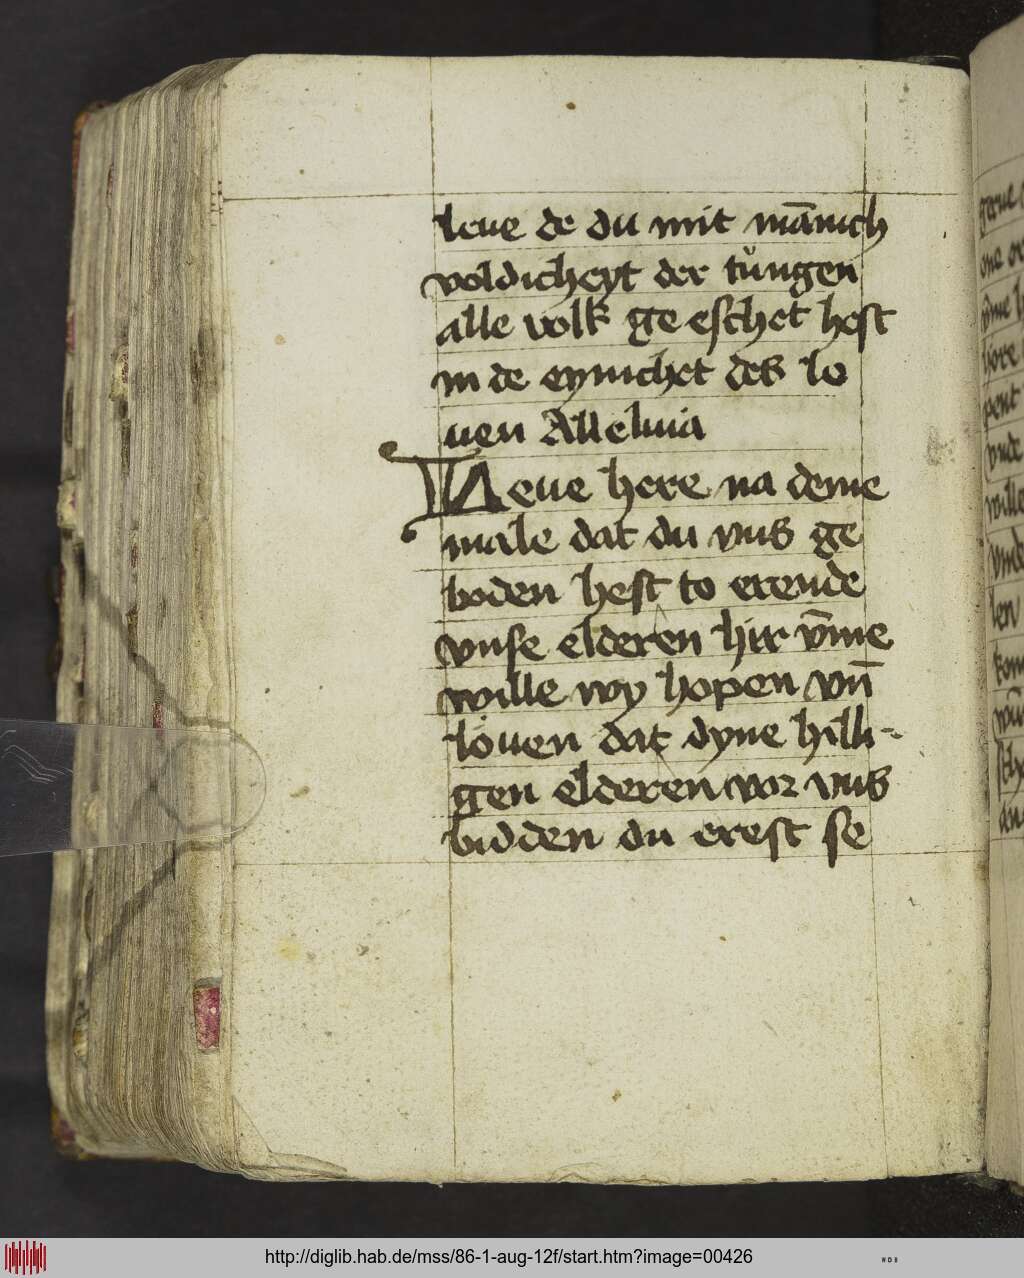 leue de du mit mānich
voldicheyt der tůngen
alle volk ge eschet hest
in de eynichet des lo
uen Alleluia
Leue here na deme
male dat du vns ge
boden hest to erende
vnse elderen hir v̄me
wille wy hopen vn̄
löuen dat dyne hilli-
gen elderen vor vns
bidden du erest se
http://diglib.hab.de/mss/86-1-aug-12f/start.htm?image=00426